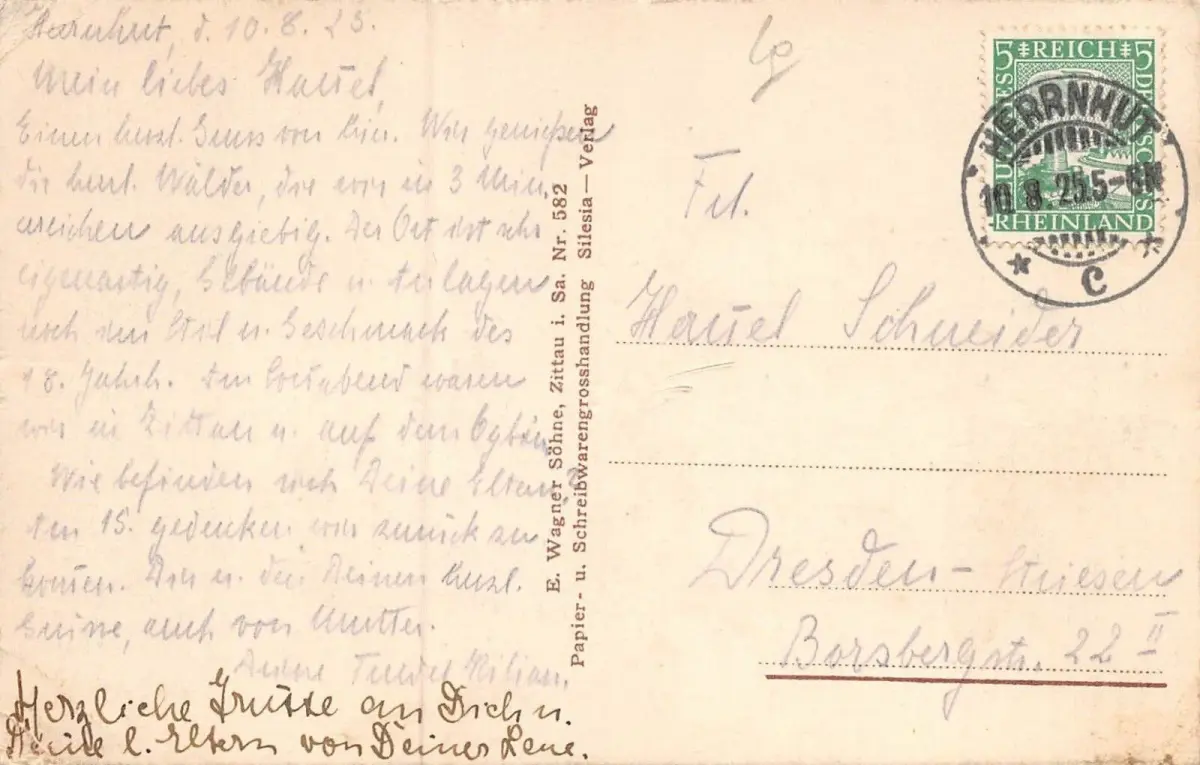 Herrnhut, d. 10.8.25.
Mein liebes Hanel,
Einen herzl. Gruss von hier. Wir genießen
die herrl. Wälder, die wir in 3 Min.
erreichen ausgiebig. Der Ort ist sehr
eigenartig, Gebäude u. Anlagen
noch im Stil u. Geschmack des
18. Jahrh. Am Sonnabend waren
wir in Zittau u. auf dem Oybin.
Wie befinden sich Deine Eltern?
Am 15. gedenken wir zurück zu
kommen. Dir u. den Deinen herzl.
Grüsse, auch von Mutter.
Deine Kilian.
Herzliche Grüsse an Dich u.
Deine l. Eltern von Deiner Lene.
E. Wagner Söhne, Zittau i. Sa. Nr. 582
Papier- u. Schreibwarengrosshandlung Silesia—Verlag
5 REICH 5
RHEINLAND
HERRNHUT
10.8.25.5-6N
* C *
Frl.
Hanel Schneider
Dresden-Striesen
Borsbergstr. 22 II